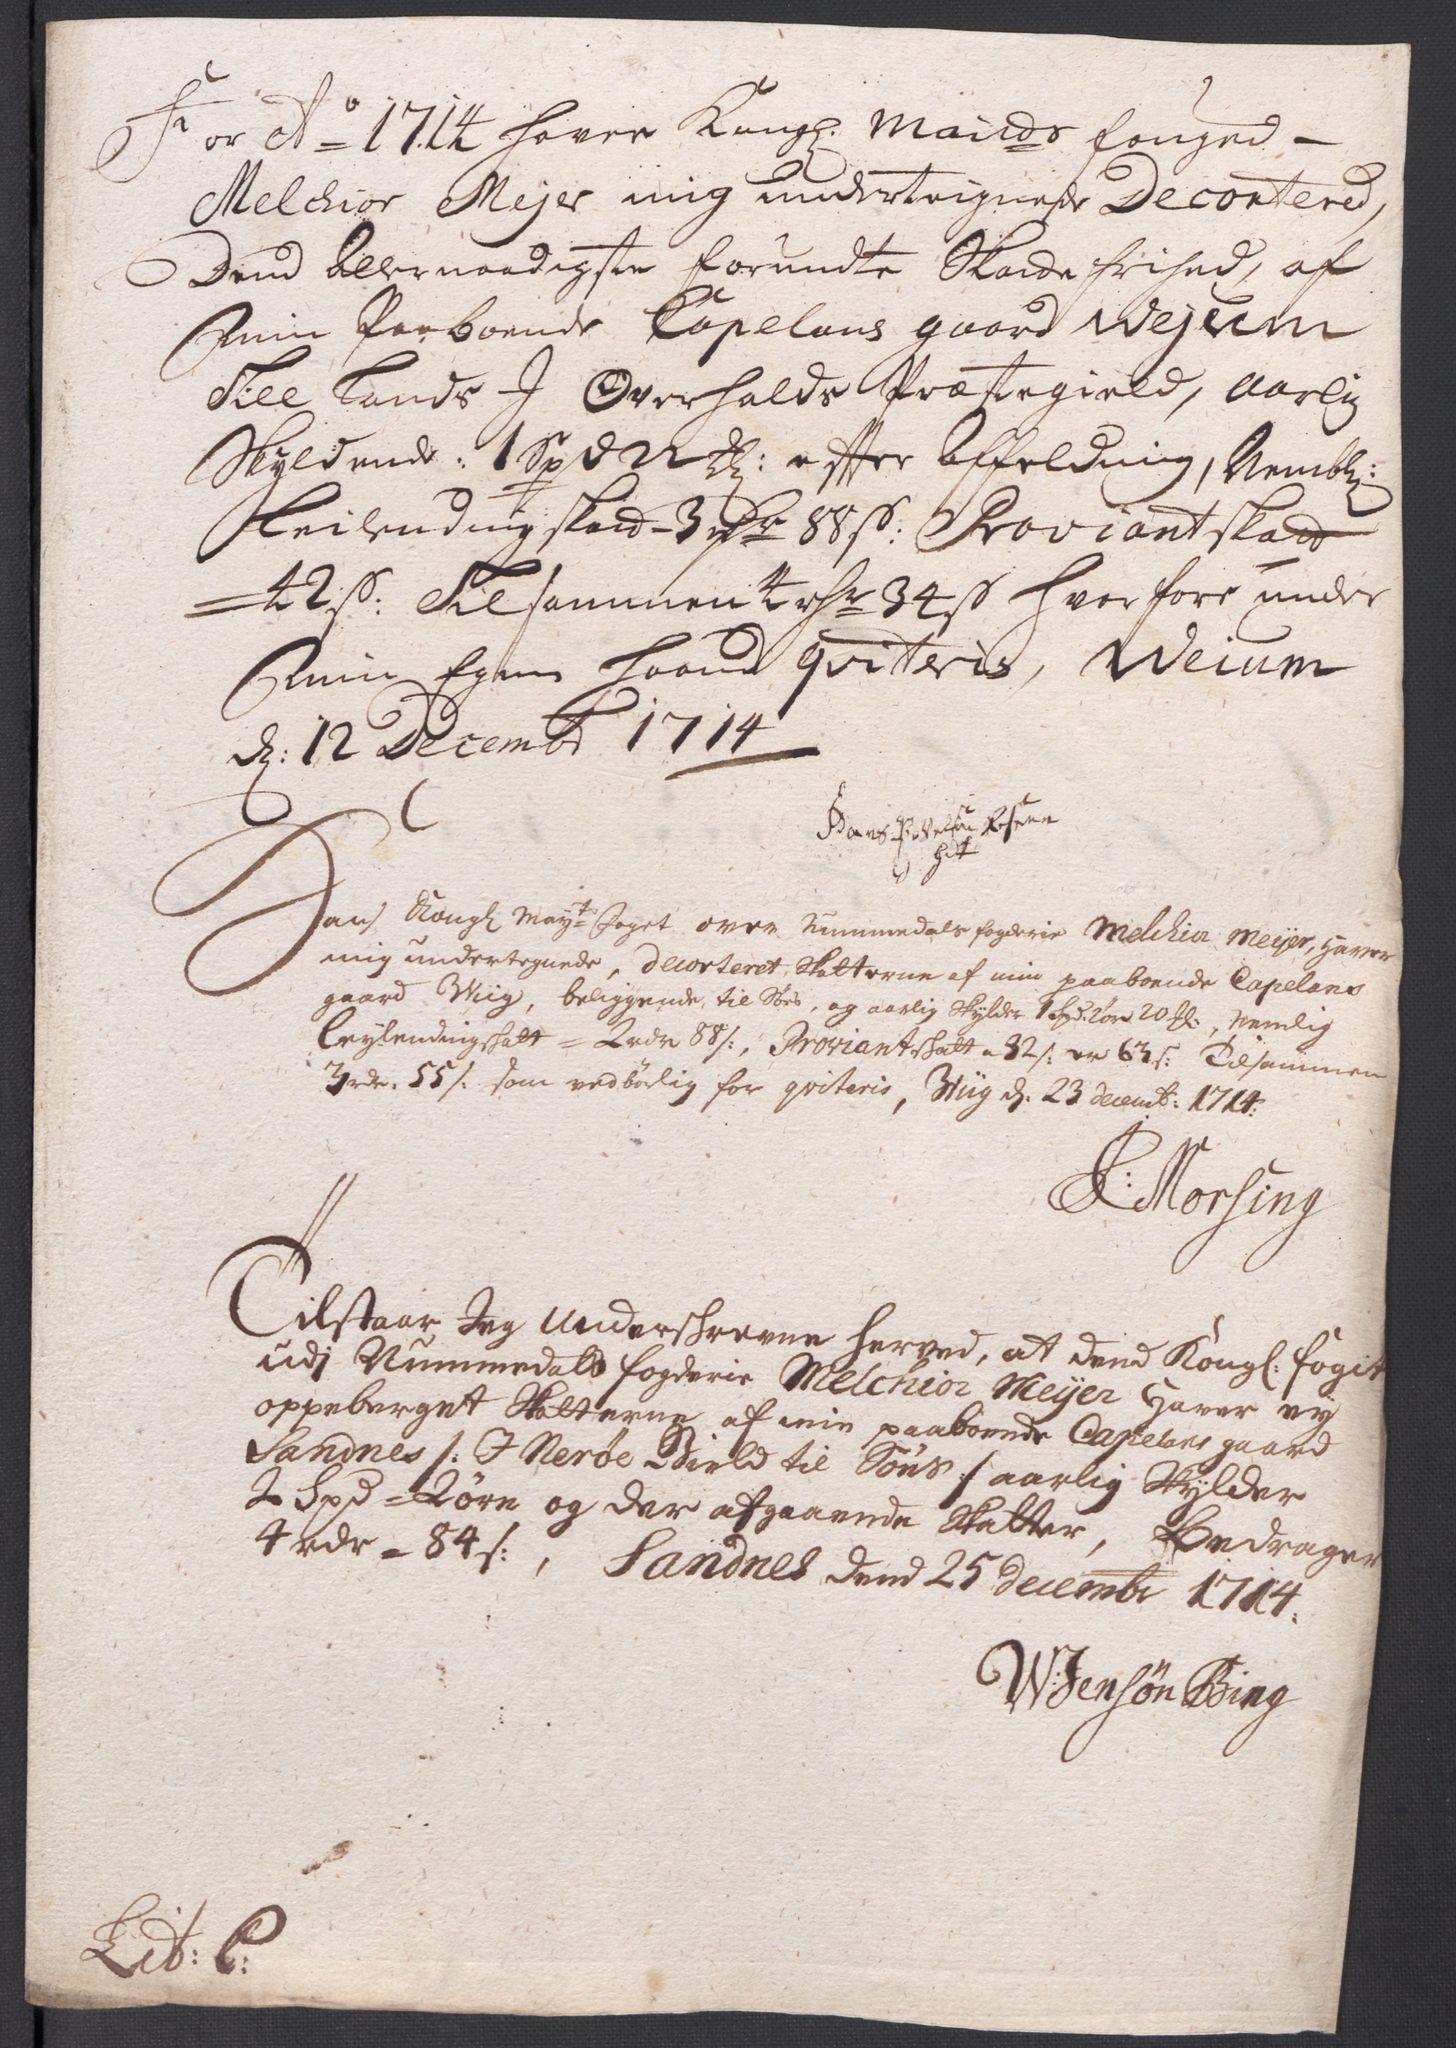 For Ao = 1714 haver Kongl. Maieds fouged –
Melchior Mejer mig underteignede Decortered,
Dend allernaadigste forundte Skade frihed, af
min Paaboende Capelans gaard Wejum
Till Lands J Overhalds Præstegield, Aarlig
Skyldende: 1 Spd 2 effter affeldning, Nembl:
Leilendingskad - 3 rdr 88 ss: Proviantskad
= 42 ss: Tilsammen 4 rdr 34 ss hvorfore under
min Egen haand qviteris, Weium
d: 12 Decembr 1714
Hans
Hans Kongl May:ts foget over Nummedals fogderie Melchior Meijer, Haver
mig undertegnede, decorteret Skatterne af min paaboende Capelans
gaard Wiig, beliggende til Söes, og aarlig Skylder 1 Spd: 2 öre, Nemlig
Leylendingskatt = 2 rdr 88 s:, Proviantskatt = 32 s: er 63 s: Tilsammen
3 rdr. 55 s: som vedbörlig for qviteris, Wiig d: 23 decemb: 1714:
Morsing
Tilstaar Jeg Underskrevne herved, at dend Kongl: fogit
udj Nummedals fogderie Melchior Meyer Haver ey
oppeberget Skatterne af min paaboende Capelans gaard
Sandnes /: J Neröe Gield til Söes :/ aarlig Skylder
2 Spd = 2 öre og der afgaaende Skatter, Bedrager
4 rdr = 84 s:, Sandnes dend 25 decembr 1714:
W: Jensön Bing
Lit: C: